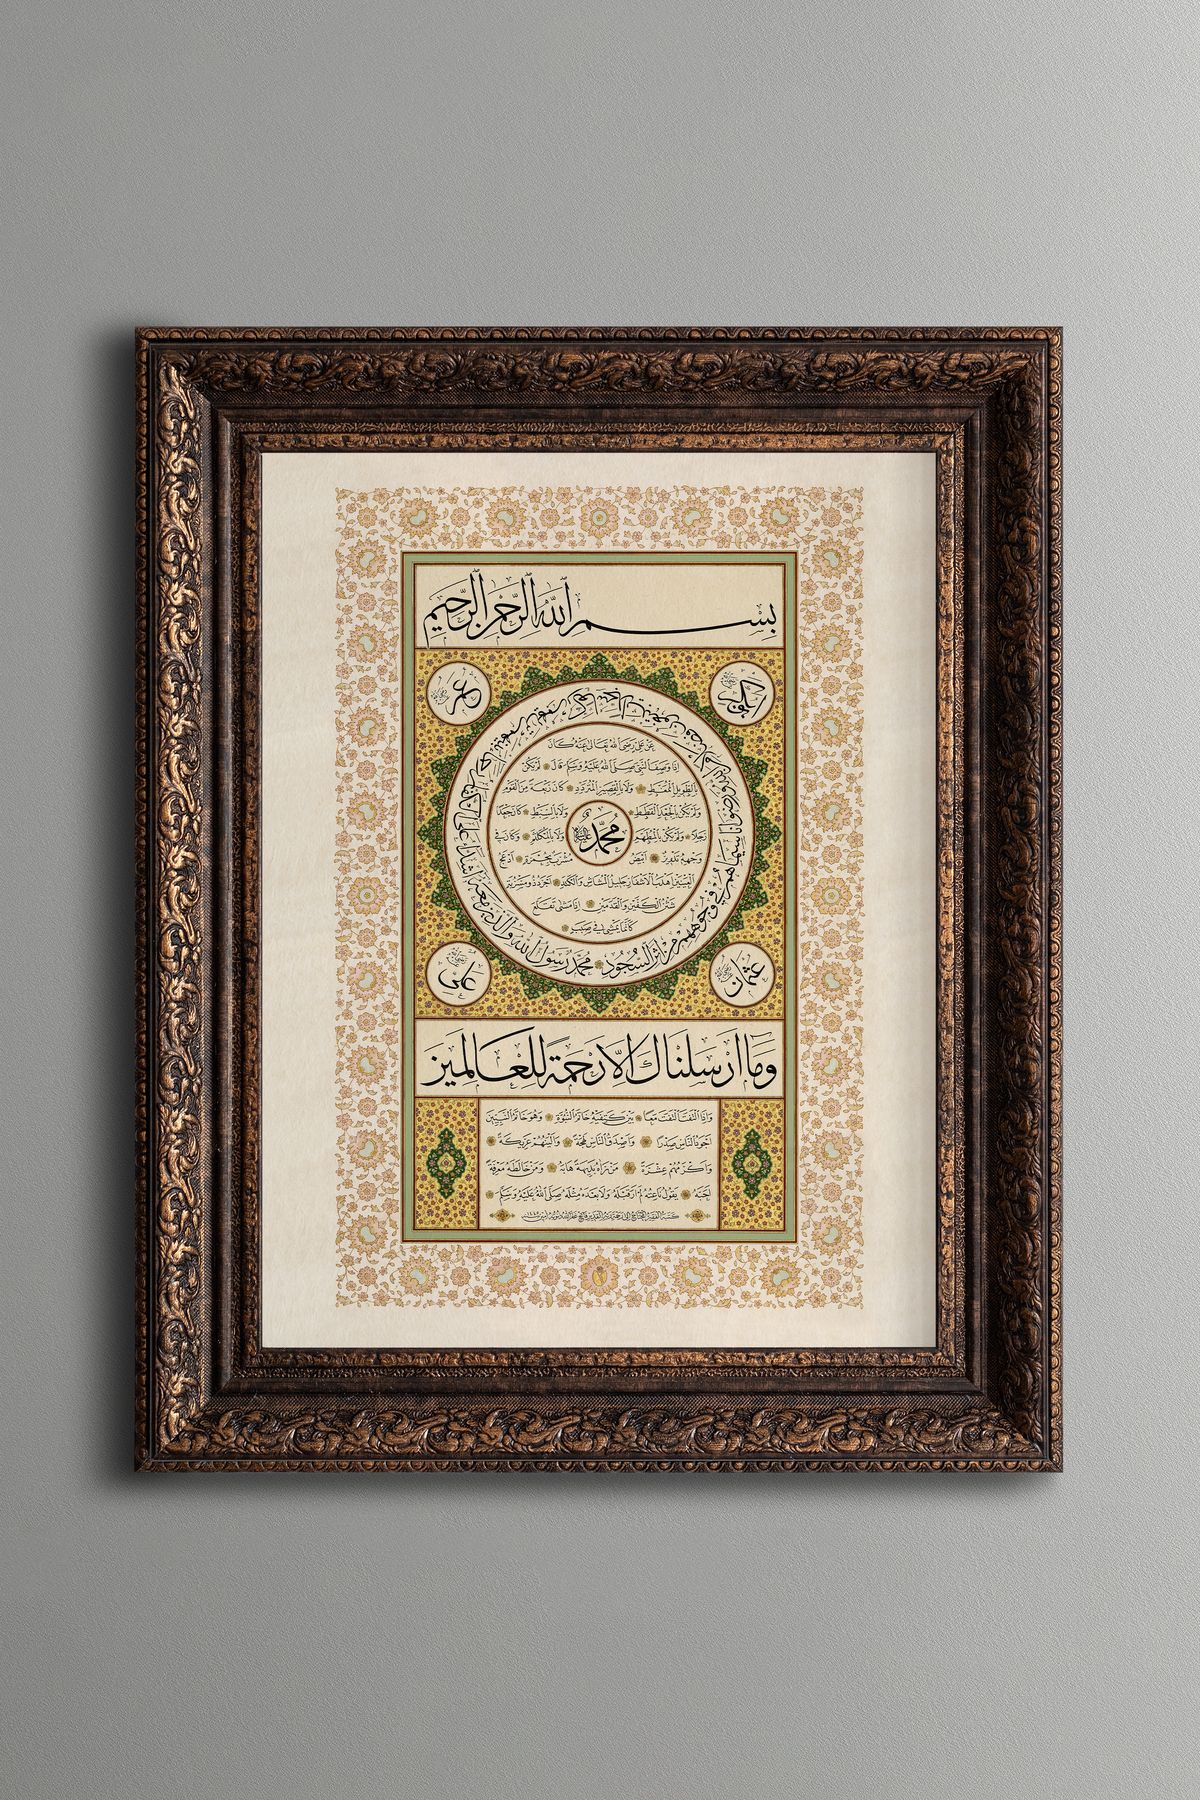 بِسْمِ اللهِ الرَّحْمٰنِ الرَّحِيمِ
ابوبكر
عمر
عن علي رضي الله تعالى عنه كان
اذا وصف النبي صلى الله عليه وسلم قال لم يكن
بالطويل الممغط ولا بالقصير المتردد كان ربعة من القوم
ولم يكن بالجعد القطط ولا بالسبط كان جعدا
محمد عليه السلام
رجلا ولم يكن بالمطهم ولا بالمكلثم وكان في
وجهه تدوير ابيض مشرب بحمرة ادعج
العينين اهدب الاشفار جليل المشاش والكتد اجرد ذو مسربة
شثن الكفين والقدمين اذا مشى تقلع
كأنما يمشي في صبب
محمد رسول الله والذين معه اشداء على الكفار رحماء بينهم تريهم ركعا سجدا يبتغون فضلا من الله ورضوانا سيماهم في وجوههم من اثر السجود
عثمان
علي
وَمَا اَرْسَلْنَاكَ اِلَّا رَحْمَةً لِلْعَالَمِينَ
واذا التفت التفت معا بين كتفيه خاتم النبوة وهو خاتم النبيين
اجود الناس صدرا واصدق الناس لهجة والينهم عريكة
واكرمهم عشرة من رآه بديهة هابه ومن خالطه معرفة
احبه يقول ناعته لم ار قبله ولا بعده مثله صلى الله عليه وسلم